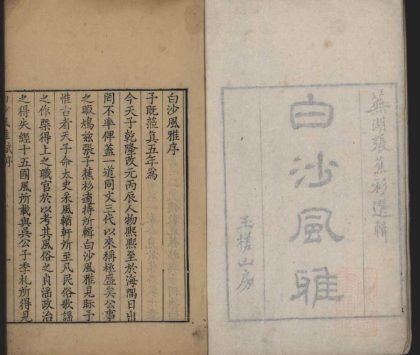 蕪湖張蕉杉選輯
白沙風雅
玉槎山房
白沙風雅序
予旣蒞真五年為
今天子乾隆改元丙辰人物熙熙至於海隅日出
罔不率俾蓋一道同文三代以來稱極盛矣公事
之暇鳩茲張子蕉杉適捧所輯白沙風雅見眎予
惟古者天子命太史采風輶軒所至凡民俗歌謠
之作槩得上之職官於以考其風俗之貞淫政治
之得失經十五國風所載與吳公子季札所得見